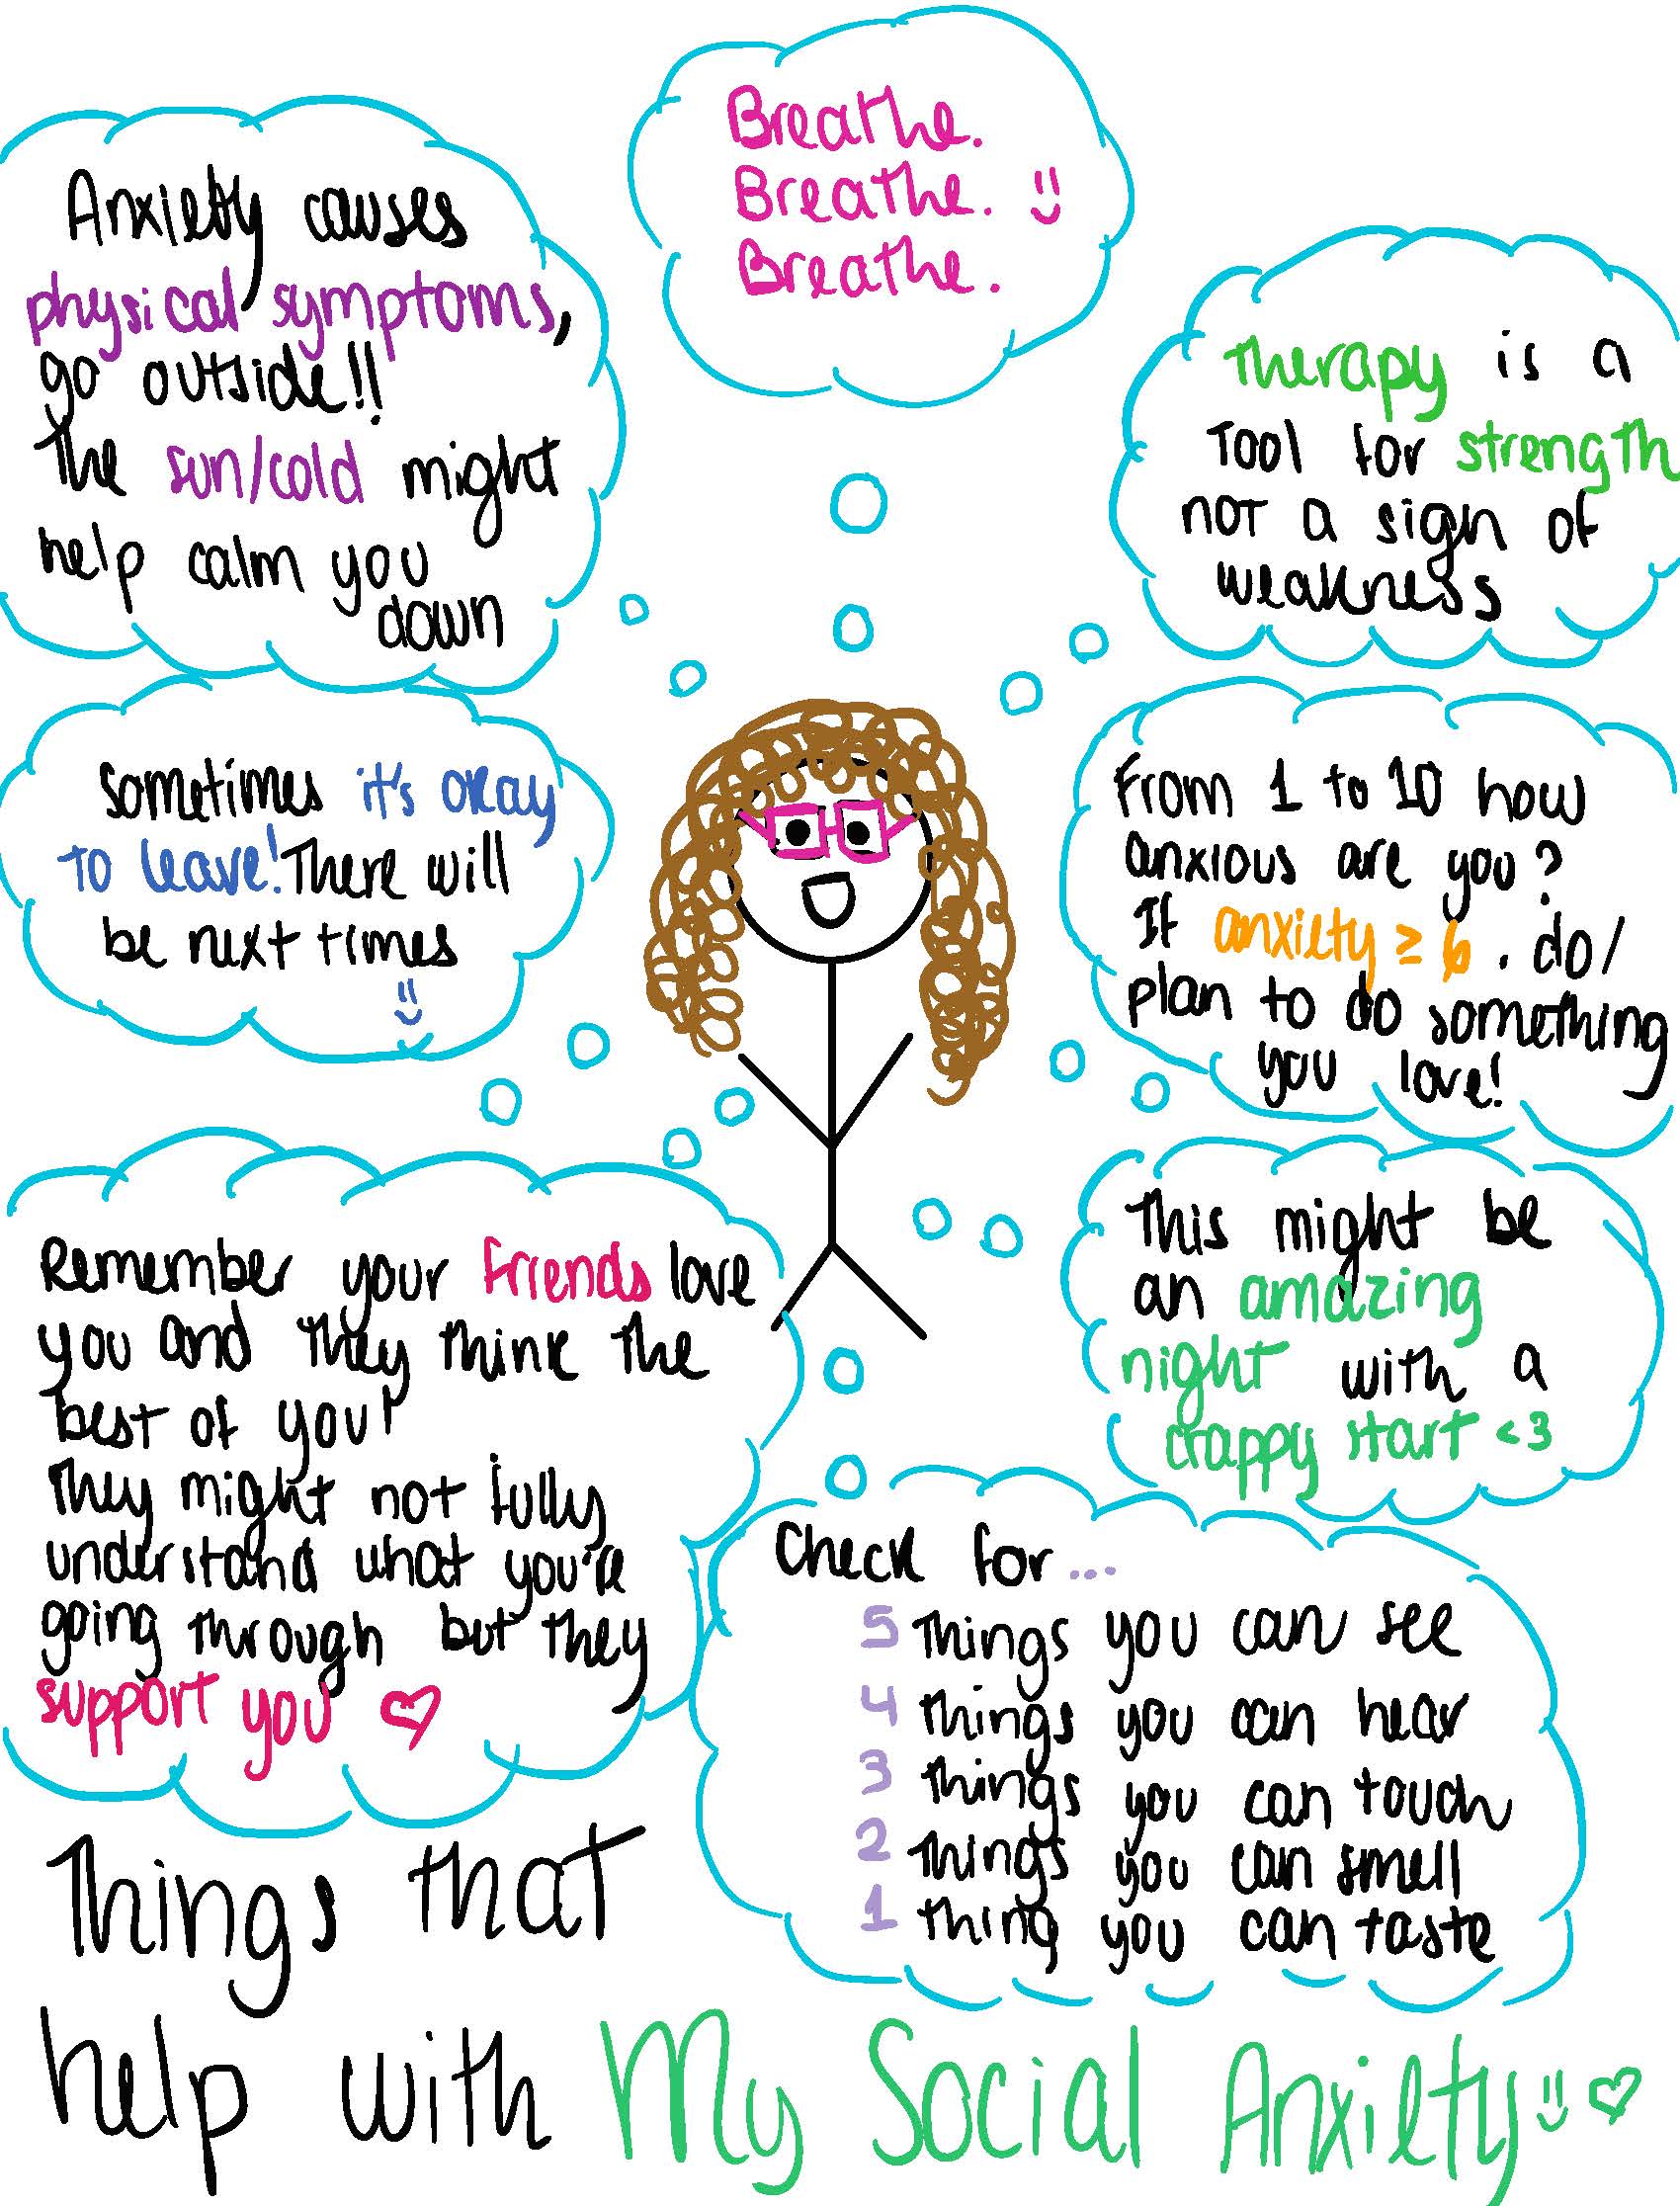 Breathe.
Breathe. :)
Breathe.
Anxiety causes
physical symptoms,
go outside!!
The sun/cold might
help calm you
down
Therapy is a
Tool for strength
not a sign of
weakness
Sometimes it's okay
to leave! There will
be next times
:)
From 1 to 10 how
anxious are you?
If anxiety ≥ 6 . do/
plan to do something
you love!
Remember your friends love
you and they think the
best of you!
They might not fully
understand what you're
going through but they
support you ♡
This might be
an amazing
night with a
crappy start <3
Check for...
5 Things you can see
4 Things you can hear
3 Things you can touch
2 Things you can smell
1 Thing you can taste
Things that
help with My Social Anxiety :) ♡